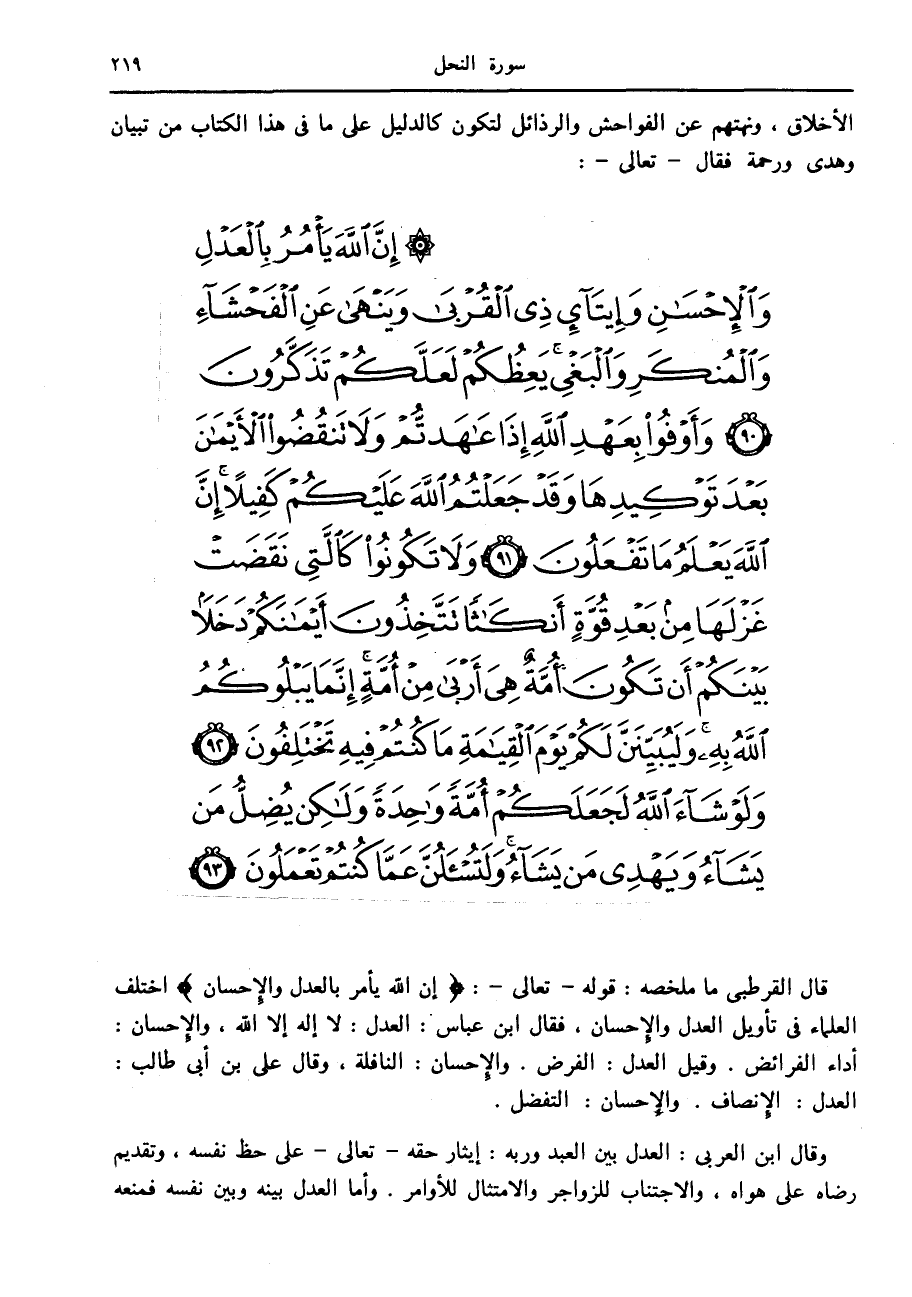 سورة النحل ٢١٩
الأخلاق ، ونهتهم عن الفواحش والرذائل لتكون كالدليل على ما فى هذا الكتاب من تبيان
وهدى ورحمة فقال - تعالى - :
۞ إِنَّ ٱللَّهَ يَأۡمُرُ بِٱلۡعَدۡلِ
وَٱلۡإِحۡسَٰنِ وَإِيتَآيِٕ ذِي ٱلۡقُرۡبَىٰ وَيَنۡهَىٰ عَنِ ٱلۡفَحۡشَآءِ
وَٱلۡمُنكَرِ وَٱلۡبَغۡيِۚ يَعِظُكُمۡ لَعَلَّكُمۡ تَذَكَّرُونَ
٩٠ وَأَوۡفُواْ بِعَهۡدِ ٱللَّهِ إِذَا عَٰهَدتُّمۡ وَلَا تَنقُضُواْ ٱلۡأَيۡمَٰنَ
بَعۡدَ تَوۡكِيدِهَا وَقَدۡ جَعَلۡتُمُ ٱللَّهَ عَلَيۡكُمۡ كَفِيلًاۚ إِنَّ
ٱللَّهَ يَعۡلَمُ مَا تَفۡعَلُونَ ٩١ وَلَا تَكُونُواْ كَٱلَّتِي نَقَضَتۡ
غَزۡلَهَا مِنۢ بَعۡدِ قُوَّةٍ أَنكَٰثٗا تَتَّخِذُونَ أَيۡمَٰنَكُمۡ دَخَلَۢا
بَيۡنَكُمۡ أَن تَكُونَ أُمَّةٌ هِيَ أَرۡبَىٰ مِنۡ أُمَّةٍۚ إِنَّمَا يَبۡلُوكُمُ
ٱللَّهُ بِهِۦۚ وَلَيُبَيِّنَنَّ لَكُمۡ يَوۡمَ ٱلۡقِيَٰمَةِ مَا كُنتُمۡ فِيهِ تَخۡتَلِفُونَ ٩٢
وَلَوۡ شَآءَ ٱللَّهُ لَجَعَلَكُمۡ أُمَّةٗ وَٰحِدَةٗ وَلَٰكِن يُضِلُّ مَن
يَشَآءُ وَيَهۡدِي مَن يَشَآءُۚ وَلَتُسۡـَٔلُنَّ عَمَّا كُنتُمۡ تَعۡمَلُونَ ٩٣
قال القرطبى ما ملخصه : قوله - تعالى - : ﴿ إن الله يأمر بالعدل والإحسان ﴾ اختلف
العلماء فى تأويل العدل والإحسان ، فقال ابن عباس : العدل : لا إله إلا الله ، والإحسان :
أداء الفرائض . وقيل العدل : الفرض . والإحسان : النافلة ، وقال على بن أبى طالب :
العدل : الإنصاف . والإحسان : التفضل .
وقال ابن العربى : العدل بين العبد وربه : إيثار حقه - تعالى - على حظ نفسه ، وتقديم
رضاه على هواه ، والاجتناب للزواجر والامتثال للأوامر . وأما العدل بينه وبين نفسه فمنعه